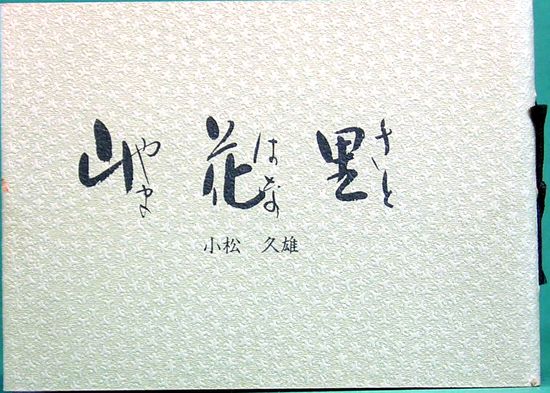 山やま 花はな 里さと
小松 久雄